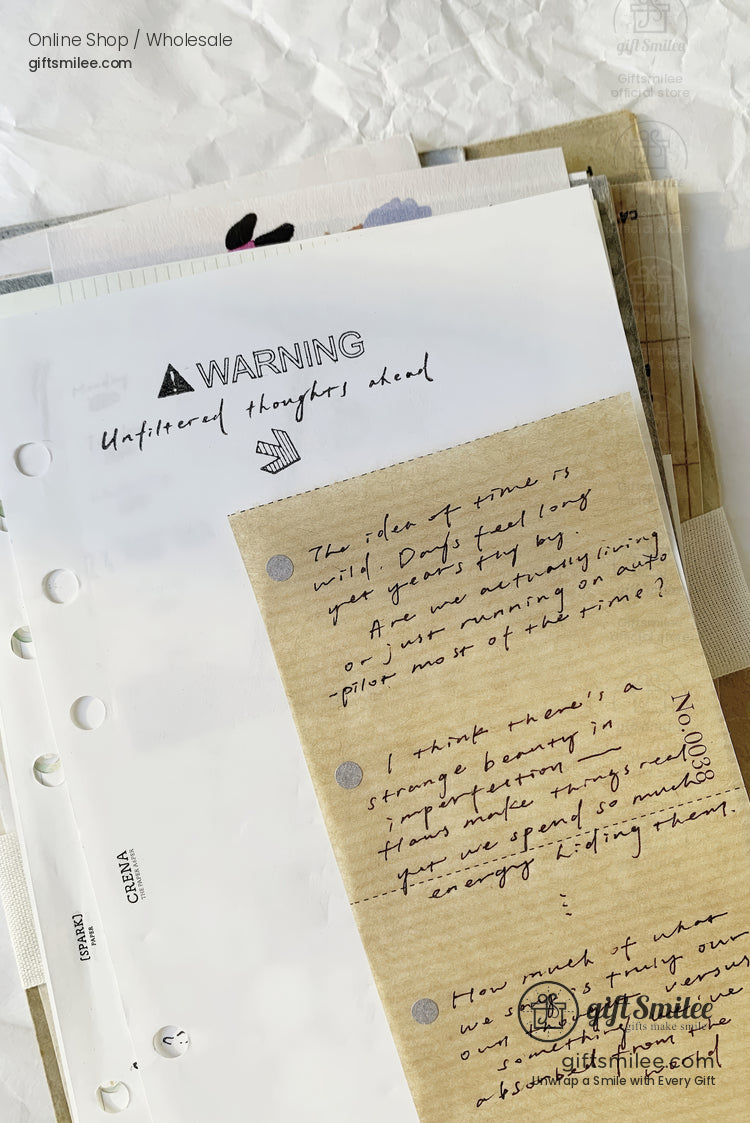 Online Shop / Wholesale
giftsmilee.com
gift Smilee
Giftsmilee
official store
WARNING
Unfiltered thoughts ahead
The idea of time is
wild. Days feel long
yet years fly by.
Are we actually living
or just running on auto
-pilot most of the time?
I think there's a
strange beauty in
imperfection —
flaws make things real
yet we spend so much
energy hiding them.
No.0038
CRENA
THE PAPER
[SPARK]
PAPER
How much of what
we is truly our
own versus
something we
absorbed from the
gift Smilee
gifts make smile
giftsmilee.com
Unwrap a Smile with Every Gift